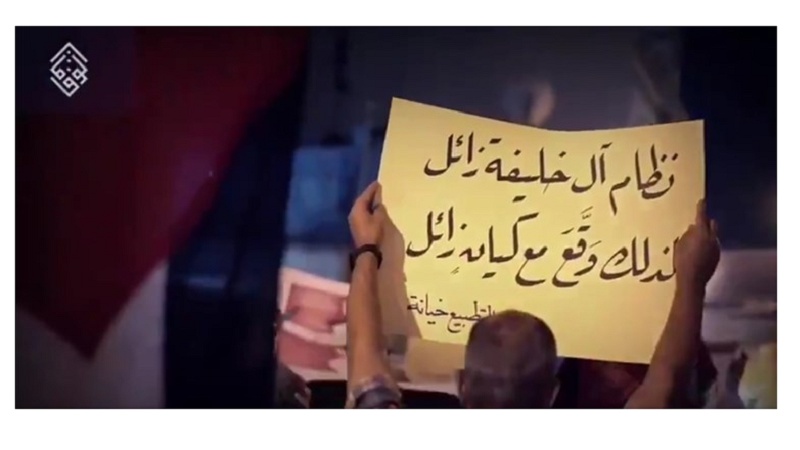 نظام آل خليفة زائل
لذلك وَقَّعَ مع كيانٍ زائل
التطبيع خيانة